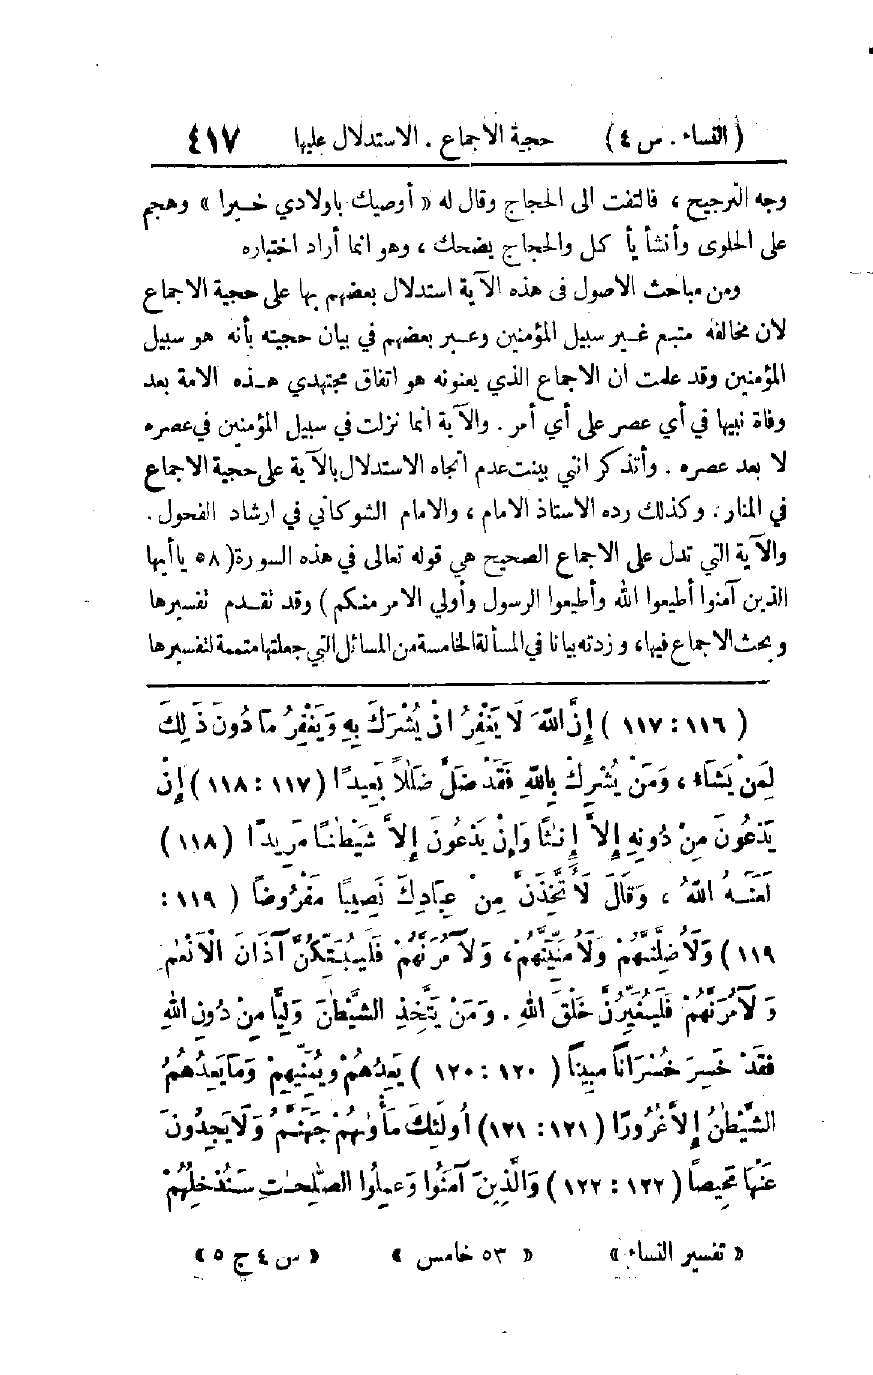 (النساء . س ٤) حجية الاجماع . الاستدلال عليها ٤١٧
وجه الترجيح ، فالتفت الى الحجاج وقال له « أوصيك باولادي خيرا » وهجم
على الحلوى وأنشأ يأ كل والحجاج يضحك ، وهو انما أراد اختباره
ومن مباحث الاصول في هذه الآية استدلال بعضهم بها على حجية الاجماع
لان مخالفه متبع غير سبيل المؤمنين وعبر بعضهم في بيان حجيته بأنه هو سبيل
المؤمنين وقد علمت ان الاجماع الذي يعنونه هو اتفاق مجتهدي هذه الامة بعد
وفاة نبيها في أي عصر على أي أمر . والآية انما نزلت في سبيل المؤمنين في عصره
لا بعد عصره . وأتذكر انني بينت عدم اتجاه الاستدلال بالآية على حجية الاجماع
في المنار . وكذلك رده الاستاذ الامام ، والامام الشوكاني في ارشاد الفحول .
والآية التي تدل على الاجماع الصحيح هي قوله تعالى في هذه السورة (٥٨ ياأيها
الذين آمنوا أطيعوا الله وأطيعوا الرسول وأولي الامر منكم ) وقد تقدم تفسيرها
وبحث الاجماع فيها، وزدته بيانا في المسألة الخامسة من المسائل التي جعلتها متممة لتفسيرها
( ١١٦ : ١١٧ ) إِنَّ اللهَ لَا يَغْفِرُ انْ يُشْرَكَ بِهِ وَيَغْفِرُ مَا دُونَ ذَلِكَ
لِمَنْ يَشَاء ، وَمَنْ يُشْرِكْ بِاللهِ فَقَدْ ضَلَّ ضَلَلاً بَعِيدًا (١١٧ : ١١٨) إِنْ
يَدْعُونَ مِنْ دُونِهِ إِلاَّ إِنٰثًا وَإِنْ يَدْعُونَ إِلاَّ شَيْطٰنًا مَرِيدًا (١١٨)
لَعَنَهُ اللهُ ، وَقَالَ لَأَتَّخِذَنَّ مِنْ عِبَادِكَ نَصِيبًا مَفْرُوضًا ( ١١٩ :
١١٩ ) وَلَأُضِلَّنَّهُمْ وَلَأُمَنِّيَنَّهُمْ، وَلَآمُرَنَّهُمْ فَلَيُبَتِّكُنَّ آذَانَ الْأَنْعٰمِ
وَلَآمُرَنَّهُمْ فَلَيُغَيِّرُنَّ خَلْقَ اللهِ . وَمَنْ يَتَّخِذِ الشَّيْطٰنَ وَلِيًّا مِنْ دُونِ اللهِ
فَقَدْ خَسِرَ خُسْرَانًا مُبِينًا ( ١٢٠ : ١٢٠ ) يَعِدُهُمْ وَيُمَنِّيهِمْ وَمَا يَعِدُهُمُ
الشَّيْطٰنُ إِلاَّ غُرُورًا (١٢١ : ١٢١) أُولَئِكَ مَأْوٰهُمْ جَهَنَّمُ وَلَا يَجِدُونَ
عَنْهَا مَحِيصًا ( ١٢٢ : ١٢٢ ) وَالَّذِينَ آمَنُوا وَعَمِلُوا الصّٰلِحٰتِ سَنُدْخِلُهُمْ
« تفسير النساء » « ٥٣ خامس » « س ٤ ج ٥ »